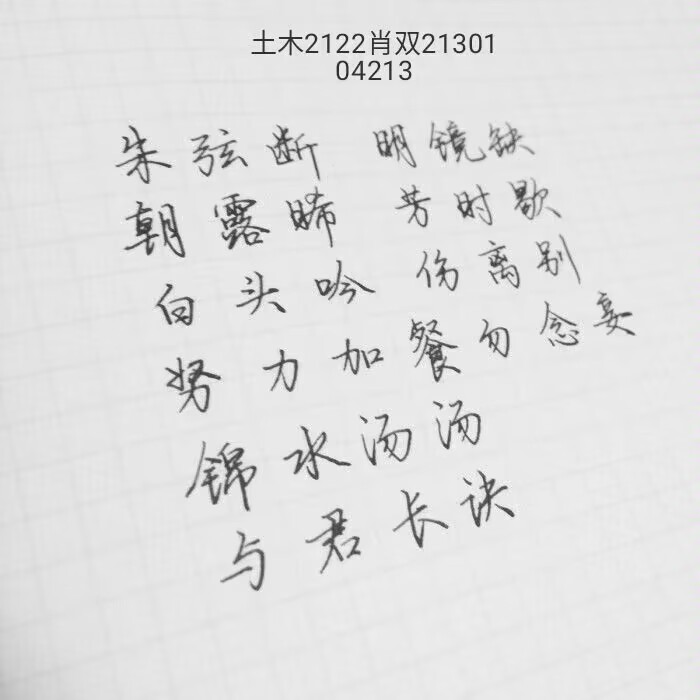 土木2122肖双21301
04213
朱弦断 明镜缺
朝露晞 芳时歇
白头吟 伤离别
努力加餐勿念妾
锦水汤汤
与君长诀